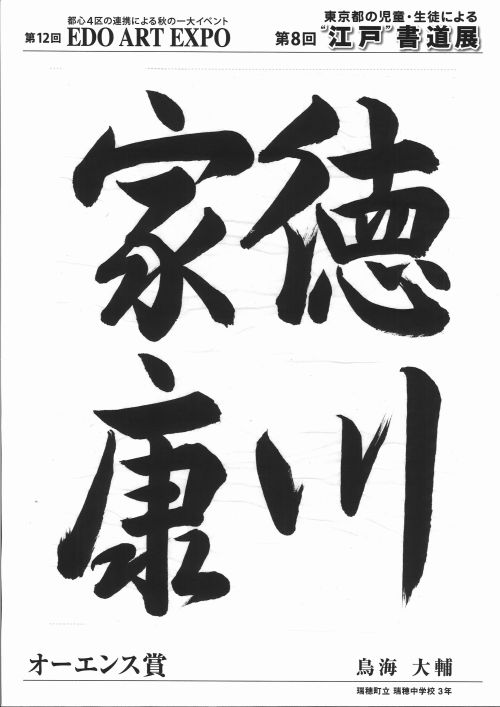 都心4区の連携による秋の一大イベント
第12回 EDO ART EXPO
東京都の児童・生徒による
第8回 "江戸"書道展
徳川
家康
オーエンス賞
鳥海 大輔
瑞穂町立 瑞穂中学校 3年